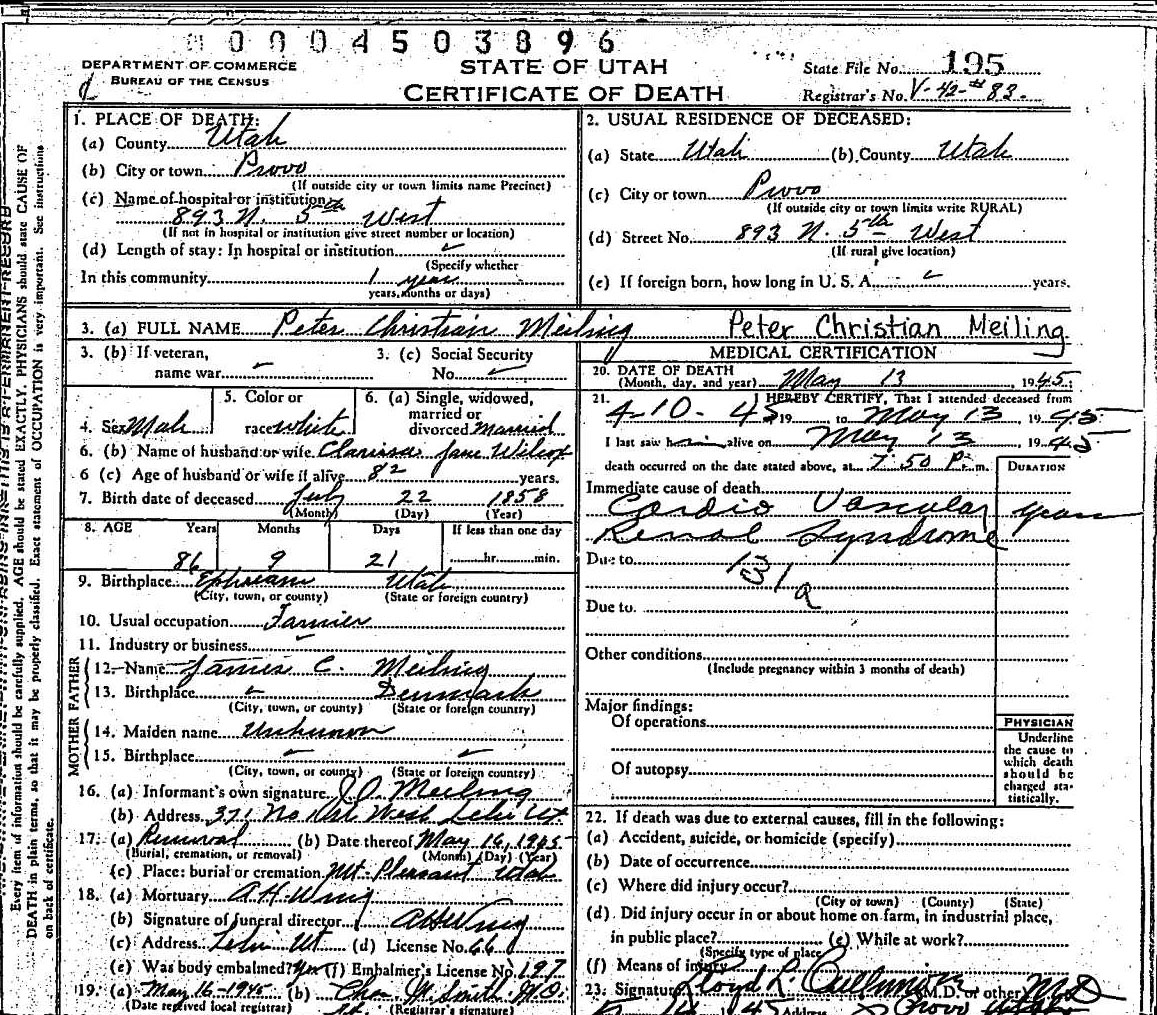 0004503896
DEPARTMENT OF COMMERCE
BUREAU OF THE CENSUS
STATE OF UTAH
CERTIFICATE OF DEATH
State File No. 195
Registrar's No. V-42-# 83.
1. PLACE OF DEATH:
(a) County Utah
(b) City or town Provo
(If outside city or town limits name Precinct)
(c) Name of hospital or institution
893 N. 5th West
(If not in hospital or institution give street number or location)
(d) Length of stay: In hospital or institution ✓
(Specify whether
In this community 1 year
years, months or days)
2. USUAL RESIDENCE OF DECEASED:
(a) State Utah (b) County Utah
(c) City or town Provo
(If outside city or town limits write RURAL)
(d) Street No. 893 N. 5th West
(If rural give location)
(e) If foreign born, how long in U. S. A. ✓ years.
3. (a) FULL NAME Peter Christian Meiling Peter Christian Meiling
3. (b) If veteran,
name war
3. (c) Social Security
No. ✓
4. Sex Male
5. Color or
race white
6. (a) Single, widowed,
married or
divorced Married
6. (b) Name of husband or wife Clarissa Jane Wilcox
6 (c) Age of husband or wife if alive 82 years.
7. Birth date of deceased July 22 1858
(Month) (Day) (Year)
8. AGE Years Months Days If less than one day
86 9 21 hr. min.
9. Birthplace Ephraim Utah
(City, town, or county) (State or foreign country)
10. Usual occupation Farmer
11. Industry or business
FATHER
12. Name James C. Meiling
13. Birthplace ✓ Denmark
(City, town, or county) (State or foreign country)
MOTHER
14. Maiden name Unknown
15. Birthplace ✓ ✓
(City, town, or county) (State or foreign country)
16. (a) Informant's own signature Meiling
(b) Address 371 No 1st West Lehi Ut
17. (a) Removal (b) Date thereof May 16, 1945
(Burial, cremation, or removal) (Month) (Day) (Year)
(c) Place: burial or cremation Mt. Pleasant Utah
18. (a) Mortuary A H Wing
(b) Signature of funeral director A H Wing
(c) Address Lehi Ut (d) License No. 66
(e) Was body embalmed? Yes (f) Embalmer's License No. 197
19. (a) May 16-1945 (b) Chas. M. Smith M.D.
(Date received local registrar) (Registrar's signature)
MEDICAL CERTIFICATION
20. DATE OF DEATH
(Month, day, and year) May 13, 1945
21. I HEREBY CERTIFY, That I attended deceased from
4-10-45 19 to May 13 1945
I last saw him alive on May 13 1945
death occurred on the date stated above, at 7:50 P. m.
DURATION
Immediate cause of death
Cardio Vascular years
Renal Syndrome
Due to
131a
Due to
Other conditions
(Include pregnancy within 3 months of death)
Major findings:
Of operations
Of autopsy
PHYSICIAN
Underline
the cause to
which death
should be
charged sta-
tistically.
22. If death was due to external causes, fill in the following:
(a) Accident, suicide, or homicide (specify)
(b) Date of occurrence
(c) Where did injury occur?
(City or town) (County) (State)
(d) Did injury occur in or about home on farm, in industrial place,
in public place? (e) While at work?
(Specify type of place)
(f) Means of injury
23. Signature Lloyd L. Cullimore M.D. or other MD
1945 Address Provo Utah
Every item of information should be carefully supplied. AGE should be stated EXACTLY. PHYSICIANS should state CAUSE OF
DEATH in plain terms, so that it may be properly classified. Exact statement of OCCUPATION is very important. See instructions
on back of certificate.